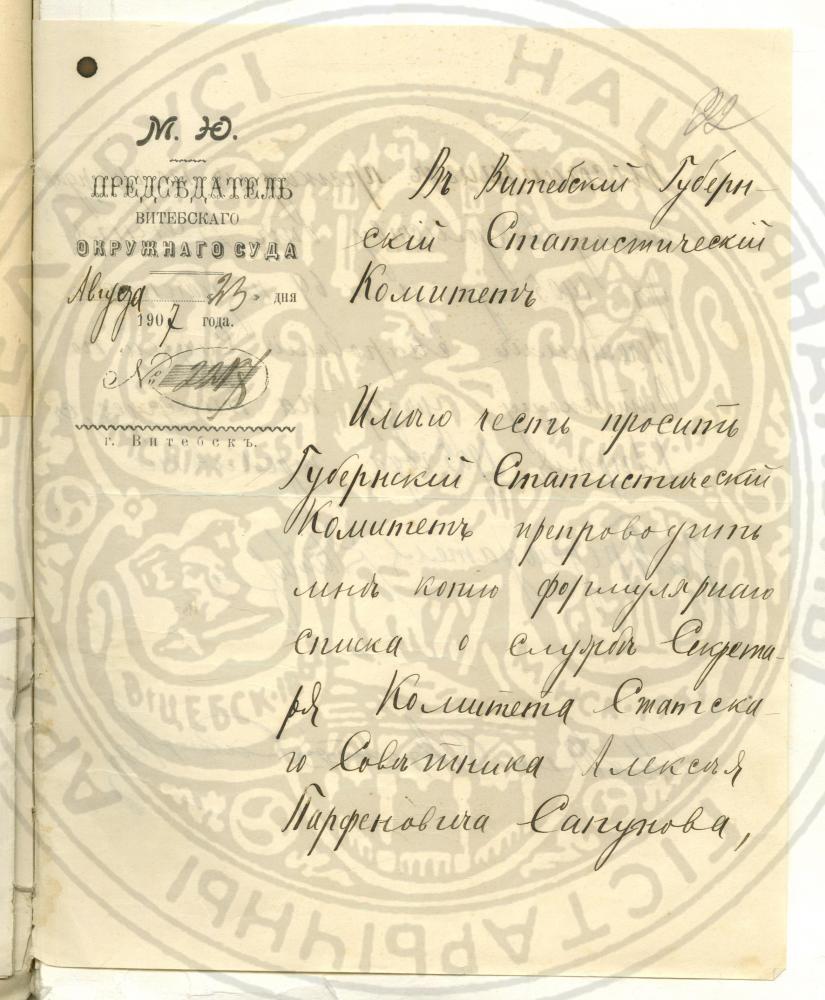 22
М. Ю.
ПРЕДСѢДАТЕЛЬ
ВИТЕБСКАГО
ОКРУЖНАГО СУДА
Августа 23 дня
1907 года.
№
г. Витебскъ.
Въ Витебскій Губерн-
скій Статистическій
Комитетъ
Имѣю честь просить
Губернскій Статистическій
Комитетъ препроводить
мнѣ копію формулярнаго
списка о службѣ Секрета-
ря Комитета Статска-
го Совѣтника Алексѣя
Парфеновича Сапунова,